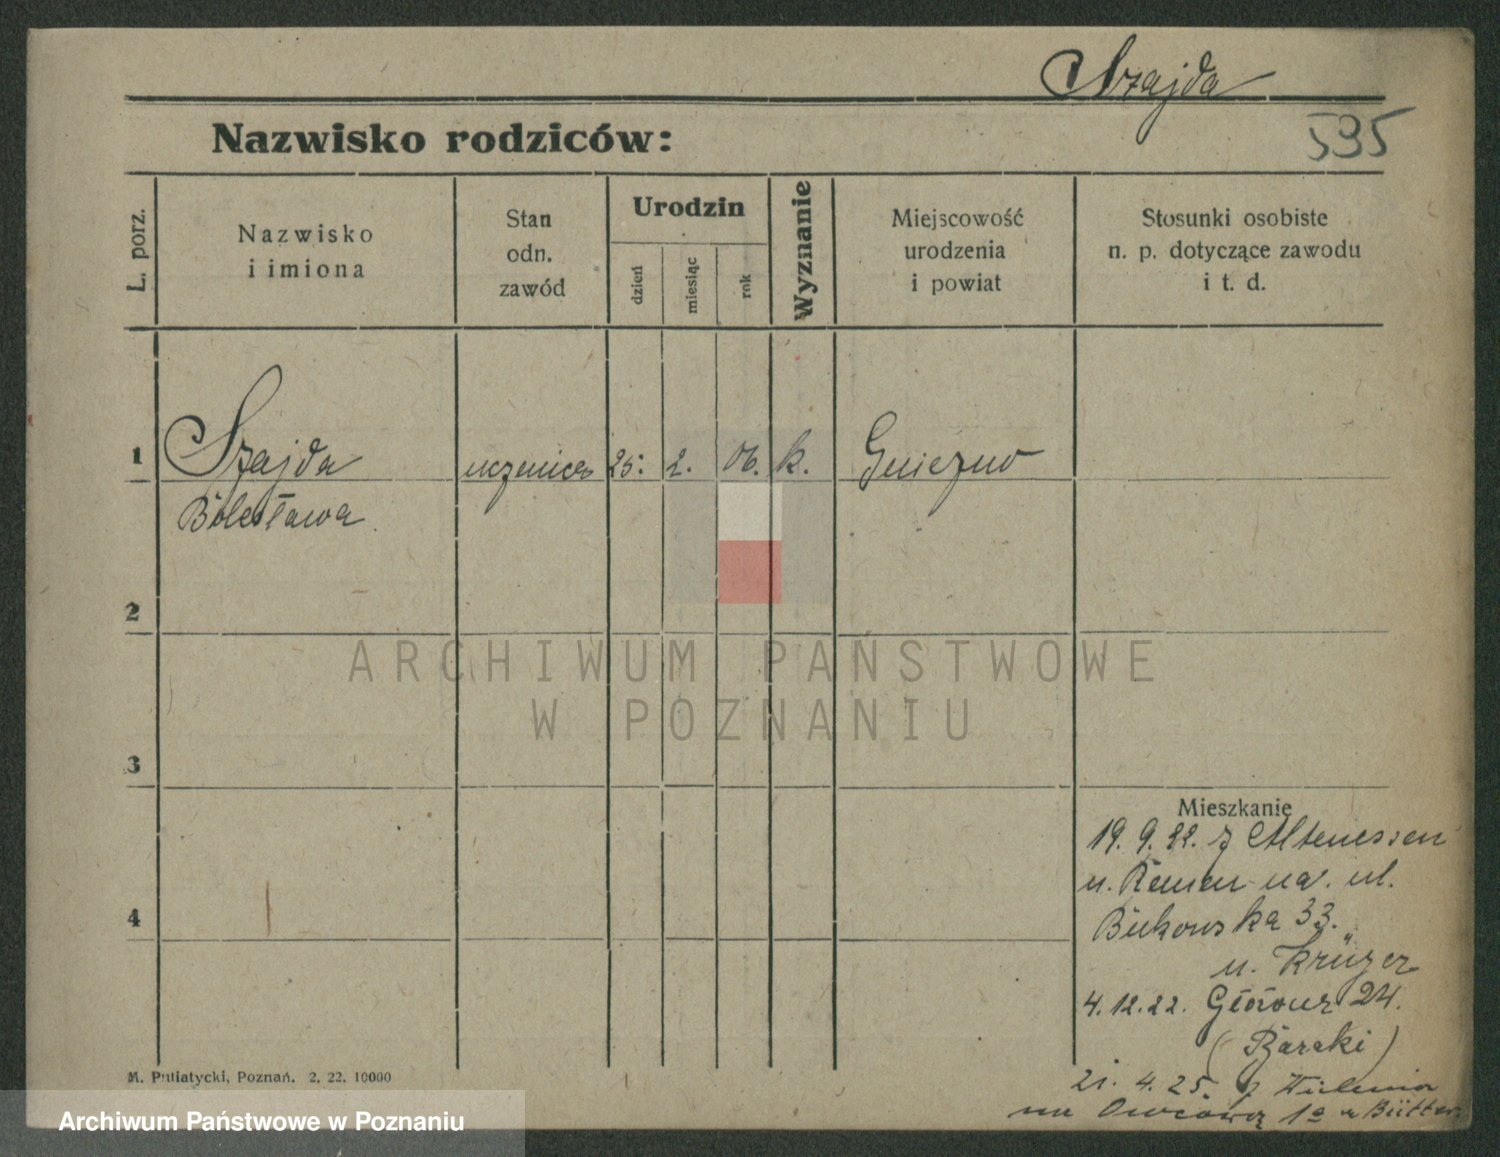 Szajda
Nazwisko rodziców:
535
L. porz.
Nazwisko
i imiona
Stan
odn.
zawód
Urodzin
dzień
miesiąc
rok
Wyznanie
Miejscowość
urodzenia
i powiat
Stosunki osobiste
n. p. dotyczące zawodu
i t. d.
1 Szajda uczenica 25. 2. 06. k. Gniezno
Bolesława
2
ARCHIWUM PAŃSTWOWE
W POZNANIU
3
Mieszkanie
19. 9. 22. z Altenessen
ul.
4
Bukowska 33.
u. Krüger
4. 12. 22. 24.
(Baraki)
21. 4. 25. z
na 1a u
M. Putiatycki, Poznań. 2. 22. 10000
Archiwum Państwowe w Poznaniu